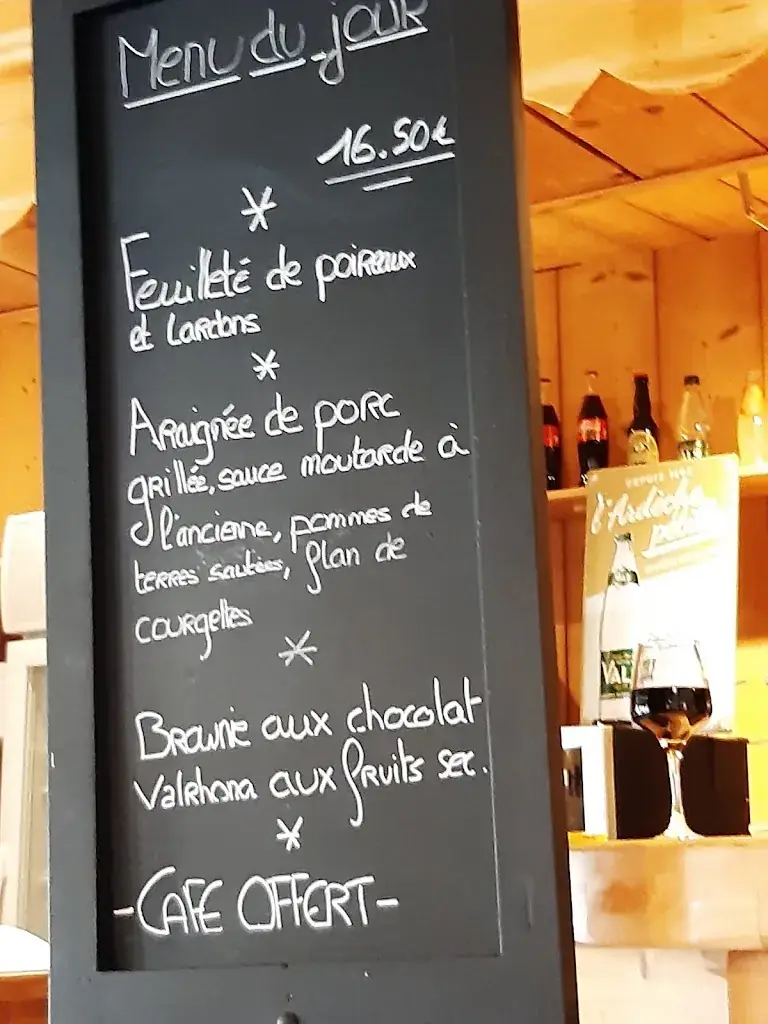 Menu du jour
16.50€
*
Feuilleté de poireaux
et lardons
*
Araignée de porc
grillée, sauce moutarde à
l'ancienne, pommes de
terres sautées, flan de
courgettes
*
Brownie aux chocolat
Valrhona aux fruits sec.
*
- CAFE OFFERT -
DEPUIS
l'Ardèche
VAL